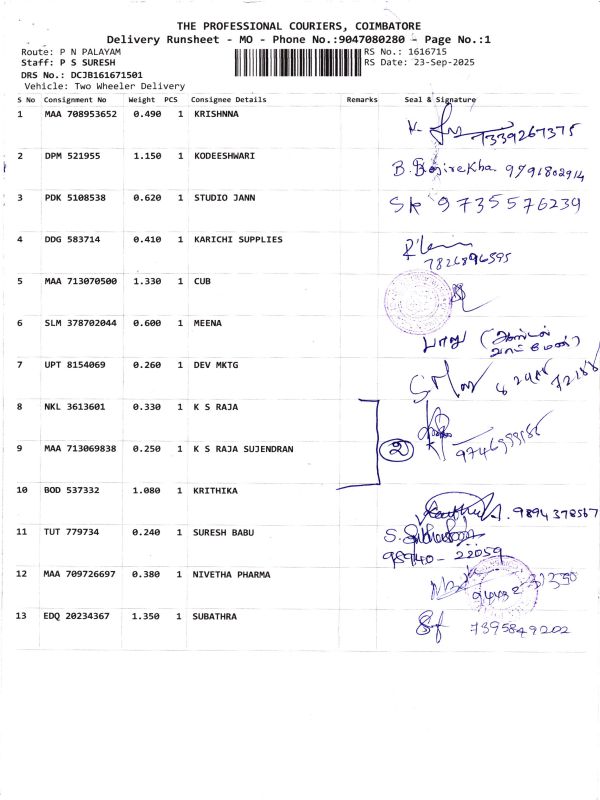 THE PROFESSIONAL COURIERS, COIMBATORE
Delivery Runsheet - MO - Phone No.:9047080280 - Page No.:1
Route: P N PALAYAM RS No.: 1616715
Staff: P S SURESH RS Date: 23-Sep-2025
DRS No.: DCJB161671501
Vehicle: Two Wheeler Delivery
S No Consignment No Weight PCS Consignee Details Remarks Seal & Signature
1 MAA 708953652 0.490 1 KRISHNNA
7339267375
2 DPM 521955 1.150 1 KODEESHWARI
B. 9791802914
3 PDK 5108538 0.620 1 STUDIO JANN SK 9735576239
4 DDG 583714 0.410 1 KARICHI SUPPLIES
7826896595
5 MAA 713070500 1.330 1 CUB
6 SLM 378702044 0.600 1 MEENA
7 UPT 8154069 0.260 1 DEV MKTG
8 NKL 3613601 0.330 1 K S RAJA
9 MAA 713069838 0.250 1 K S RAJA SUJENDRAN 2
10 BOD 537332 1.080 1 KRITHIKA
9894378567
11 TUT 779734 0.240 1 SURESH BABU S.
98940-22059
12 MAA 709726697 0.380 1 NIVETHA PHARMA
13 EDQ 20234367 1.350 1 SUBATHRA 7395849202